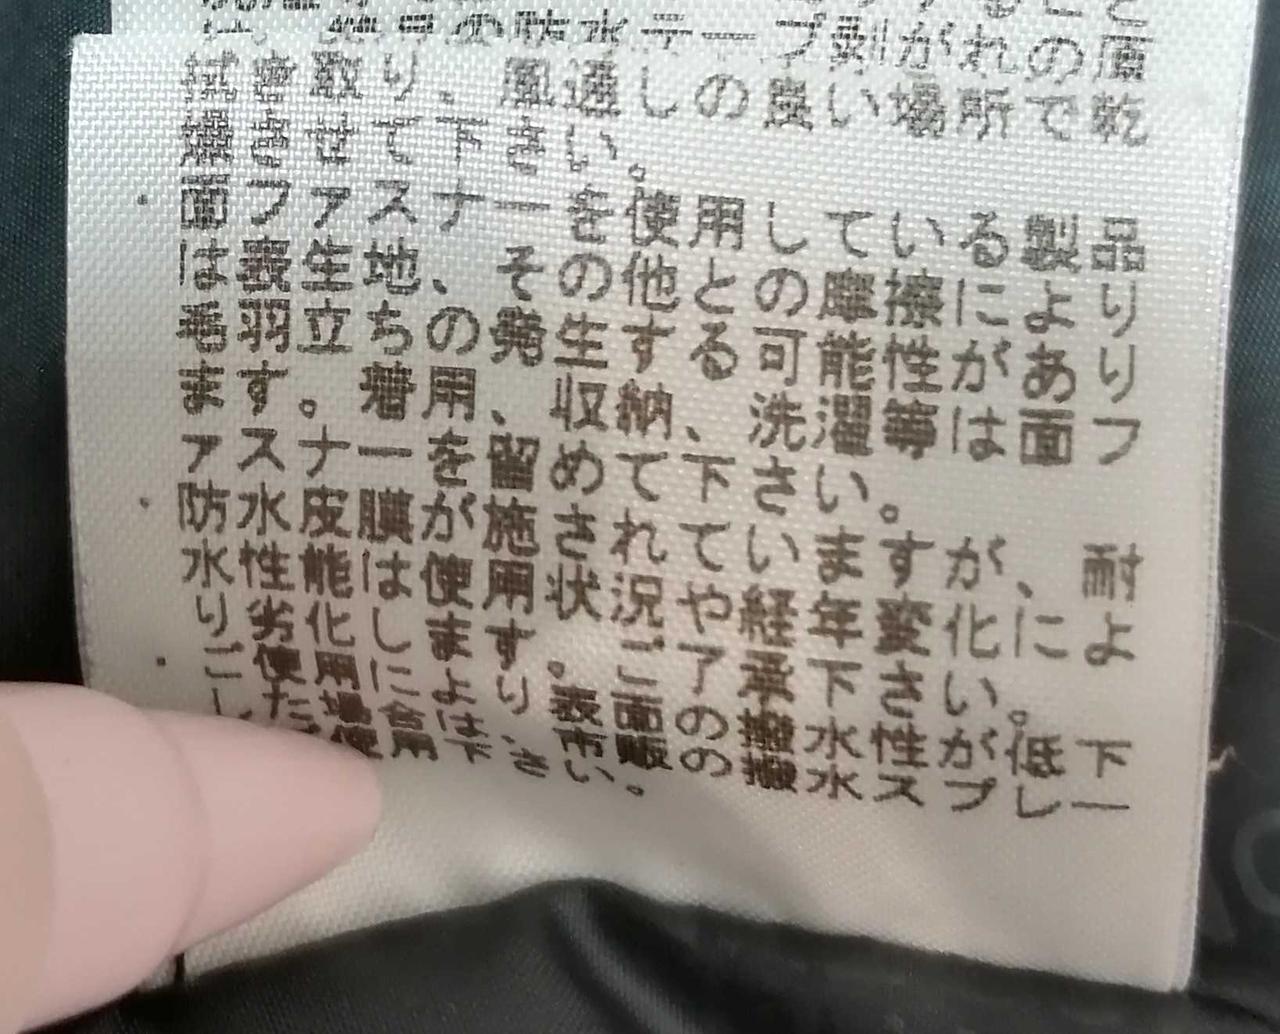 の防水テープ剥がれの原
拭き取り、風通しの良い場所で乾
燥させて下さい。
・面ファスナーを使用している製品
は表生地、その他との摩擦により
毛羽立ちの発生する可能性があり
ます。着用、収納、洗濯等は面フ
ァスナーを留めて下さい。
・防水皮膜が施されていますが、耐
水性能は使用状況や経年変化によ
り劣化します。ご了承下さい。
・ご使用により、表面の撥水性が低下
した場合は、市販の撥水スプレー
ご使用下さい。